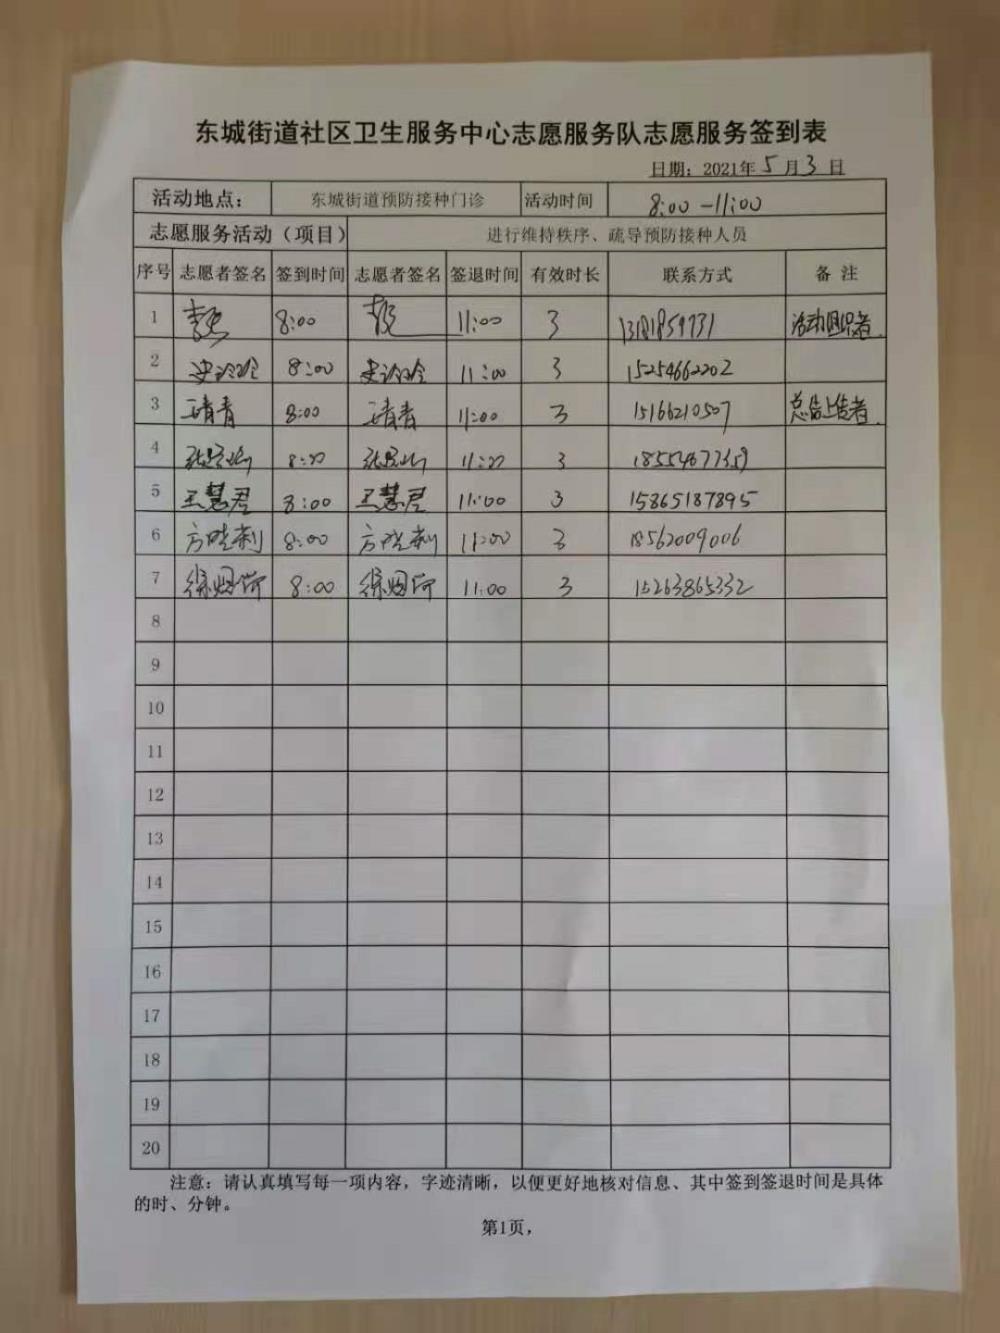 东城街道社区卫生服务中心志愿服务队志愿服务签到表
日期：2021年5月3日
活动地点： 东城街道预防接种门诊 活动时间 8:00-11:00
志愿服务活动（项目） 进行维持秩序、疏导预防接种人员
序号 志愿者签名 签到时间 志愿者签名 签退时间 有效时长 联系方式 备 注
1 8:00 11:00 3 活动组织者
2 8:00 11:00 3 15254662202
3 8:00 11:00 3 15166210507
4 8:00 11:00 3
5 王慧君 8:00 王慧君 11:00 3 15865187895
6 方晓莉 8:00 方晓莉 11:00 3 18562009006
7 8:00 11:00 3 15263865332
8
9
10
11
12
13
14
15
16
17
18
19
20
注意：请认真填写每一项内容，字迹清晰，以便更好地核对信息、其中签到签退时间是具体
的时、分钟。
第1页，